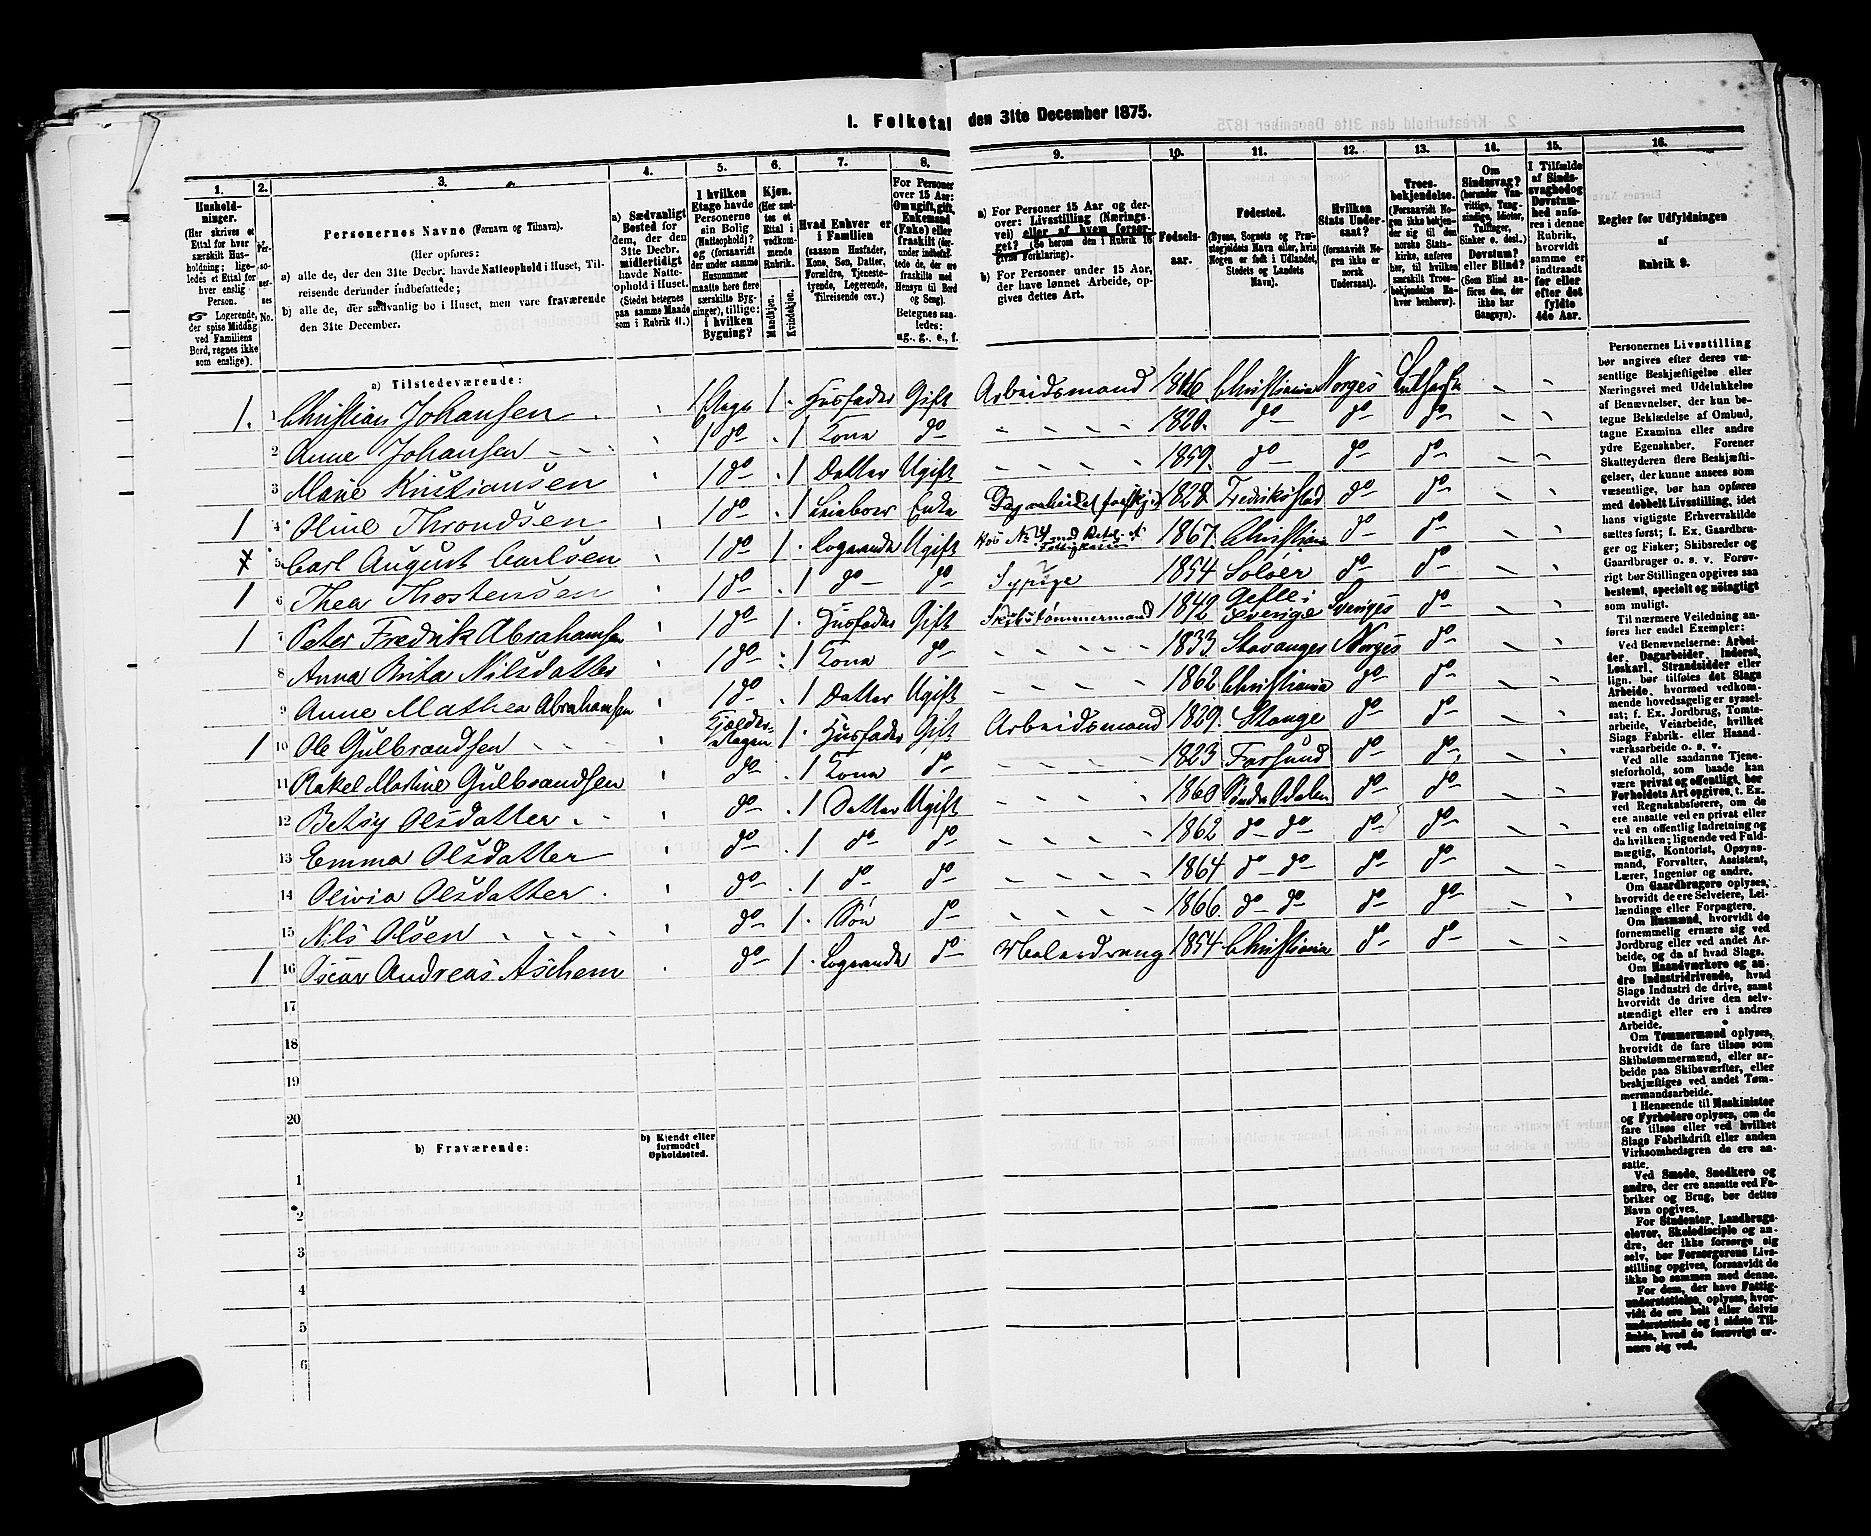 1. Folketal den 31te December 1875.
1. 2. 3. 4. 5. 6. 7. 8. 9. 10. 11. 12. 13. 14. 15. 16.
Hushold-
ninger.
(Her skrives et
Ettal for hver
særskilt Hus-
holdning; lige-
ledes et Ettal for
hver enslig
Person.
☞ Logerende,
der spise Middag
ved Familiens
Bord, regnes ikke
som enslige).
Per-
so-
ner-
nes
No.
Personernes Navne (Fornavn og Tilnavn).
(Her opføres:
a) alle de, der den 31te Decbr. havde Natteophold i Huset, Til-
reisende derunder indbefattede;
b) alle de, der sædvanlig bo i Huset, men vare fraværende
den 31te December.
a) Sædvanligt
Bosted for
dem, der den
31te Decbr.
midlertidigt
havde Natte-
ophold i Huset.
(Stedet betegnes
paa samme Maade
som i Rubrik 11.)
I hvilken
Etage havde
Personerne
sin Bolig
(Natteophold)?
og (forsaavidt
der under samme
Husnummer
maatte høre flere
særskilte Byg-
ninger), tillige:
i hvilken
Bygning?
Kjøn.
(Her sæt-
tes et
Ettal i
vedkom-
mende
Rubrik.
Mandkjøn.
Kvindekjøn.
Hvad Enhver er
i Familien
(saasom Husfader,
Kone, Søn, Datter,
Forældre, Tjeneste-
tyende, Logerende,
Tilreisende osv.)
For Personer
over 15 Aar:
Om ugift, gift,
Enkemand
(Enke) eller
fraskilt (der-
under indbefat-
tede de, der ere
fraskilte med
Hensyn til Bord
og Seng).
Betegnes saa-
ledes:
ug., g., e., f.
a) For Personer 15 Aar og der-
over: Livsstilling (Nærings-
vei) eller af hvem forsør-
get? (Se herom den i Rubrik 16
givne Forklaring).
b) For Personer under 15 Aar,
der have lønnet Arbeide, op-
gives dettes Art.
Fødsels-
aar.
Fødested.
(Byens, Sognets og Præ-
stegjeldets Navn eller, hvis
Nogen er født i Udlandet,
Stedets og Landets
Navn).
Hvilken
Stats Under-
saat?
(forsaavidt No-
gen ikke er
norsk
Undersaat).
Troes-
bekjendelse.
(Forsaavidt No-
gen ikke bekjen-
der sig til den
norske Stats-
kirke, anføres
her, til hvilken
særskilt Troes-
bekjendelse En-
hver henhører).
Om
Sindssvag?
(herunder Van-
vittige, Tung-
sindige, Idioter,
Tullinger,
Sinker o. desl.)
Døvstum?
eller Blind?
(Som Blind an-
føres den, der
ikke har
Gangsyn).
I Tilfælde
af Sinds-
svaghed og
Døvstum-
hed anfø-
res i denne
Rubrik,
hvorvidt
samme er
indtraadt
før eller
efter det
fyldte
4de Aar.
Regler for Udfyldningen
af
Rubrik 9.
a) Tilstedeværende:
1. 1 Christian Johansen 1 Etage 1 Husfader Gift Arbeidsmand Christiania Norges Luthersk
2 Anne Johansen 1 do 1 Kona do 1820. do do do
3 Marie Kristiansen 1 do 1 Datter Ugift 1859. do do do
1 4 Oline Throndsen 1 do 1 Leieboer Enke 1828. Fredrikstad do do
5 Carl August Carlsen 1 do 1 Logerende Ugift 1867. Christiania do do
1 6 Thea Thostensen 1 do 1 do do Sypige 1854 Soløer do do
1 7 Peter Fredrik Abrahamsen 1 do 1 Husfader Gift Skibstømmermand 1842 Gefle i Sverige Sveriges do
8 Anna Brita Nilsdatter 1 do 1 Kona do 1833 Stavanger Norges do
9 Anne Mathea Abrahamsen 1 do 1 Datter Ugift 1862 Christiania do do
1 10 Ole Gulbrandsen Kjælder-etagen 1 Husfader Gift Arbeidsmand 1829. Stange do do
11 Rakel Martine Gulbrandsen do 1 Kona do 1823 Farsund do do
12 Betsy Olsdatter do 1 Datter Ugift 1860 Søndre Odalen do do
13 Emma Olsdatter do 1 do do 1862 do do do do
14 Olivia Olsdatter do 1 do do 1864 do do do do
15 Nils Olsen do 1 Søn do 1866 do do do do
1 16 Oscar Andreas Aschem do 1 Logerende do Malerdreng 1854 Christiania do do
17
18
19
20
b) Fraværende:
b) Kjendt eller
formodet
Opholdssted.
1
2
3
4
5
6
Personernes Livsstilling
bør angives efter deres væ-
sentlige Beskjæftigelse eller
Næringsvei med Udelukkelse
af Benævnelser, der kun be-
tegne Beklædelse af Ombud,
tagne Examina eller andre
ydre Egenskaber. Forener
Skatteyderen flere Beskjæfti-
gelser, der kunne ansees som
væsentlige, bør han opføres
med dobbelt Livsstilling, idet
hans vigtigste Erhvervskilde
sættes først; f. Ex. Gaardbru-
ger og Fisker; Skibsreder og
Gaardbruger o. s. v. Forøv-
rigt bør Stillingen opgives saa
bestemt, specielt og nøiagtigt
som muligt.
Til nærmere Veiledning an-
føres her endel Exempler:
Ved Benævnelserne: Arbei-
der, Dagarbeider, Inderst,
Løskarl, Strandsidder eller
lign. bør tilføies det Slags
Arbeide, hvormed vedkom-
mende hovedsagelig er syssel-
sat; f. Ex. Jordbrug, Tomte-
arbeide, Veiarbeide, hvilket
Slags Fabrik- eller Haand-
værksarbeide o. s. v.
Ved alle saadanne Tjene-
steforhold, som baade kan
være privat og offentligt, bør
Forholdets Art opgives, t. Ex.
ved Regnskabsførere, om de
ere ansatte ved en privat eller
ved en offentlig Indretning og
da hvilken; lignende ved Fuld-
mægtig, Kontorist, Opsyns-
mand, Forvalter, Assistent,
Lærer, Ingeniør og andre.
Om Gaardbrugere oplyses,
hvorvidt de ere Selveiere, Lei-
lændinge eller Forpagtere.
Om Husmænd, hvorvidt de
fornemmelig ernære sig ved
Jordbrug eller ved andet Ar-
beide, og da af hvad Slags.
Om Haandværkere og an-
dre Industridrivende, hvad
Slags Industri de drive, samt
hvorvidt de drive den selv-
stændigt eller ere i andres
Arbeide.
Om Tømmermænd oplyses,
hvorvidt de fare tilsøs som
Skibstømmermænd, eller ar-
beide paa Skibsværfter, eller
beskjæftiges ved andet Tøm-
mermandsarbeide.
I Henseende til Maskinister
og Fyrbødere oplyses, om de
fare tilsøs eller ved hvilket
Slags Fabrikdrift eller anden
Virksomhedsgren de ere an-
satte.
Ved Smede, Snedkere og
andre, der ere ansatte ved Fa-
briker og Brug, bør dettes
Navn opgives.
For Studenter, Landbrugs-
elever, Skoledisciple og an-
dre, der ikke forsørge sig
selv, bør Forsørgerens Livs-
stilling opgives, forsaavidt de
ikke bo sammen med denne.
For dem, der have Fattig-
understøttelse, oplyses, hvor-
vidt de ere helt eller delvis
understøttede og i sidste Til-
fælde, hvad de forøvrigt er-
nære sig ved.